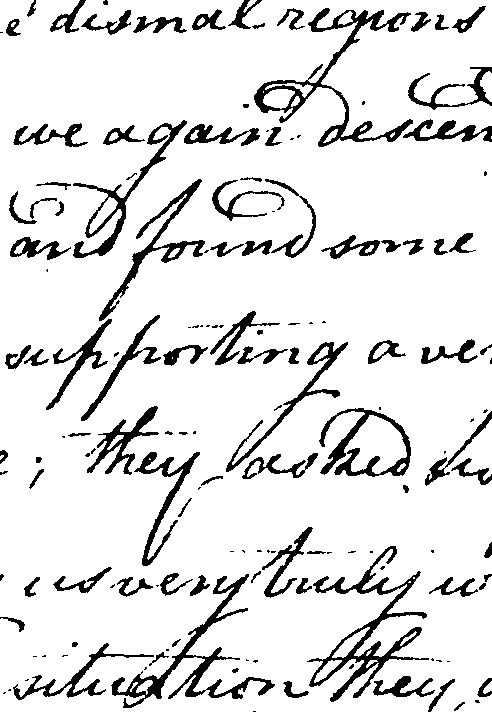 e' dismal regions
we again descen
and found some
supporting a ver
e; they asked, su
us very truly w
situation they,